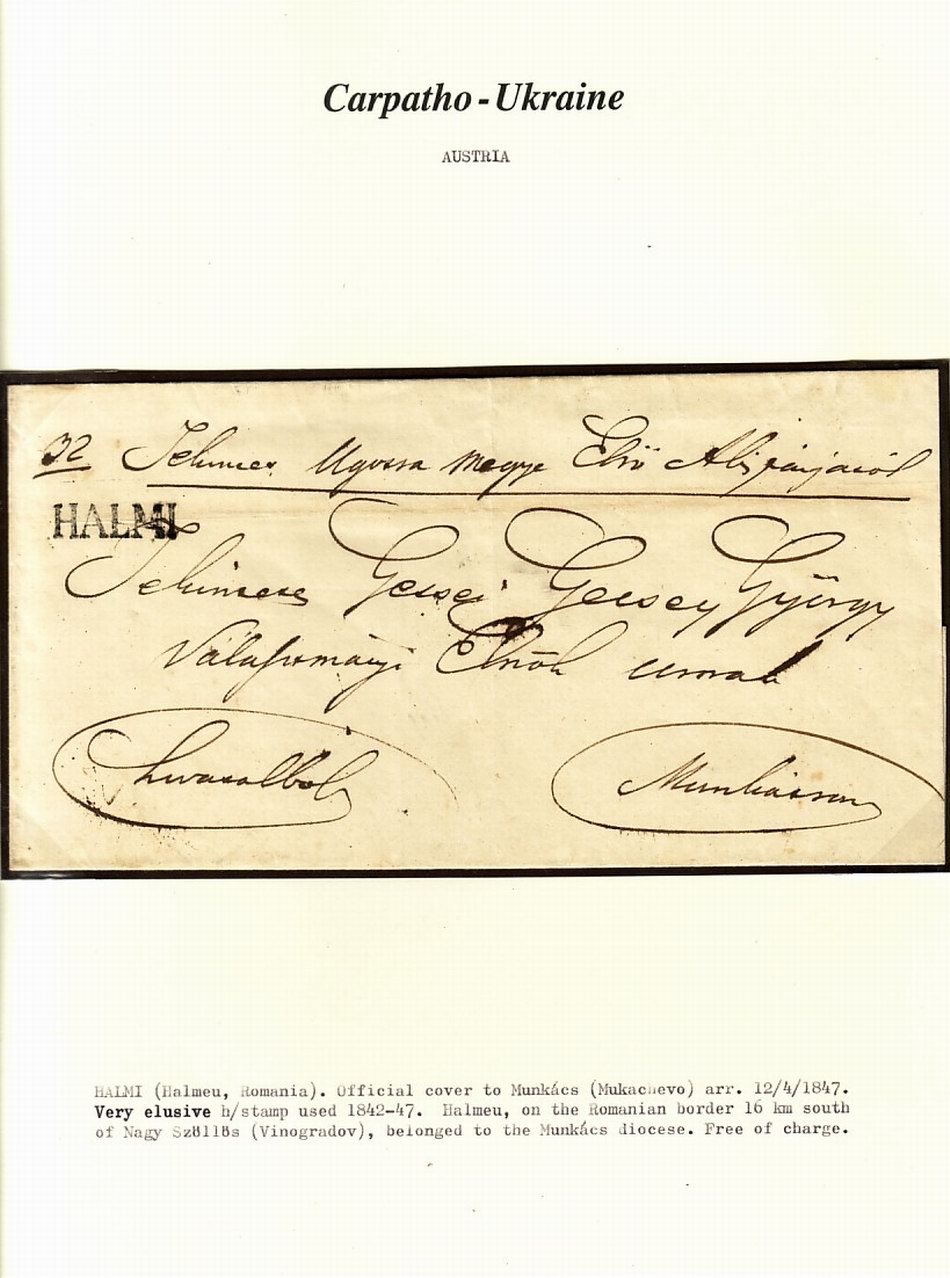 Carpatho-Ukraine
AUSTRIA
32 Ugocsa megye Első Alispánjától
HALMI
Gecsei Gecsey György
Választmányi Elnök urnak
Munkácson
HALMI (Halmeu, Romania). Official cover to Munkács (Mukachevo) arr. 12/4/1847.
Very elusive h/stamp used 1842-47. Halmeu, on the Romanian border 16 km south
of Nagy Szöllös (Vinogradov), belonged to the Munkács diocese. Free of charge.